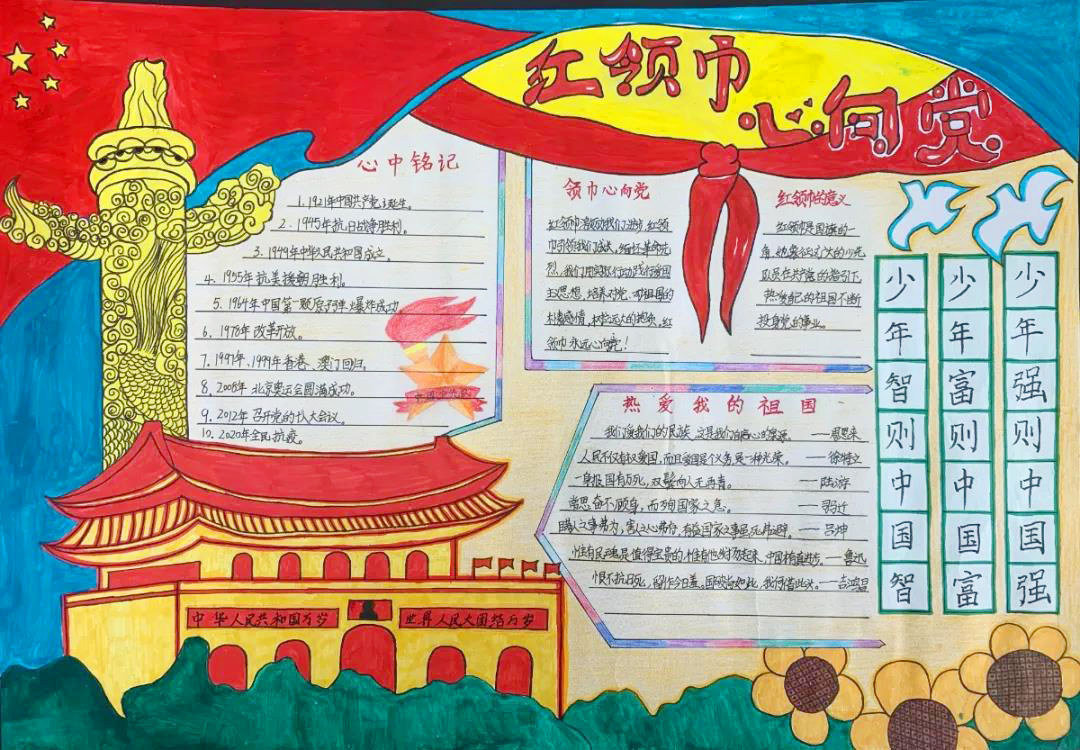 红领巾
心向党
心中铭记
1.1921年中国共产党诞生。
2.1945年抗日战争胜利。
3.1949年中华人民共和国成立。
4.1955年抗美援朝胜利。
5.1964年中国第一颗原子弹爆炸成功
6.1978年改革开放。
7.1997年、1999年香港、澳门回归。
8.2008年北京奥运会圆满成功。
9.2012年召开党的十八大会议。
10.2020年全民抗疫。
领巾心向党
红领巾激励我们进步,红领
巾引领我们成长,缅怀革命先
烈,我们用实际行动践行爱国
主义思想,培养对党、对祖国的
朴素感情,树立远大的抱负,红
领巾永远心向党!
红领巾的意义
红领巾是国旗的一
角,她象征这广大的少先
队员在共产党的指引下,
热爱自己的祖国不断
投身党的事业。
热爱我的祖国
我们爱我们的民族,这是我们自信心的源泉。——周恩来
人民不仅有权爱国,而且爱国是个义务,是一种光荣。——徐特立
一身报国有万死,双鬓向人无再青。——陆游
常思奋不顾身,而殉国家之急。——司马迁
——吕坤
惟有民魂是值得宝贵的,惟有他发扬起来,中国才有真进步。——鲁迅
恨不抗日死,留作今日羞。国破尚如此,我何惜此头。——吉鸿昌
少年智则中国智
少年富则中国富
少年强则中国强
中华人民共和国万岁
世界人民大团结万岁